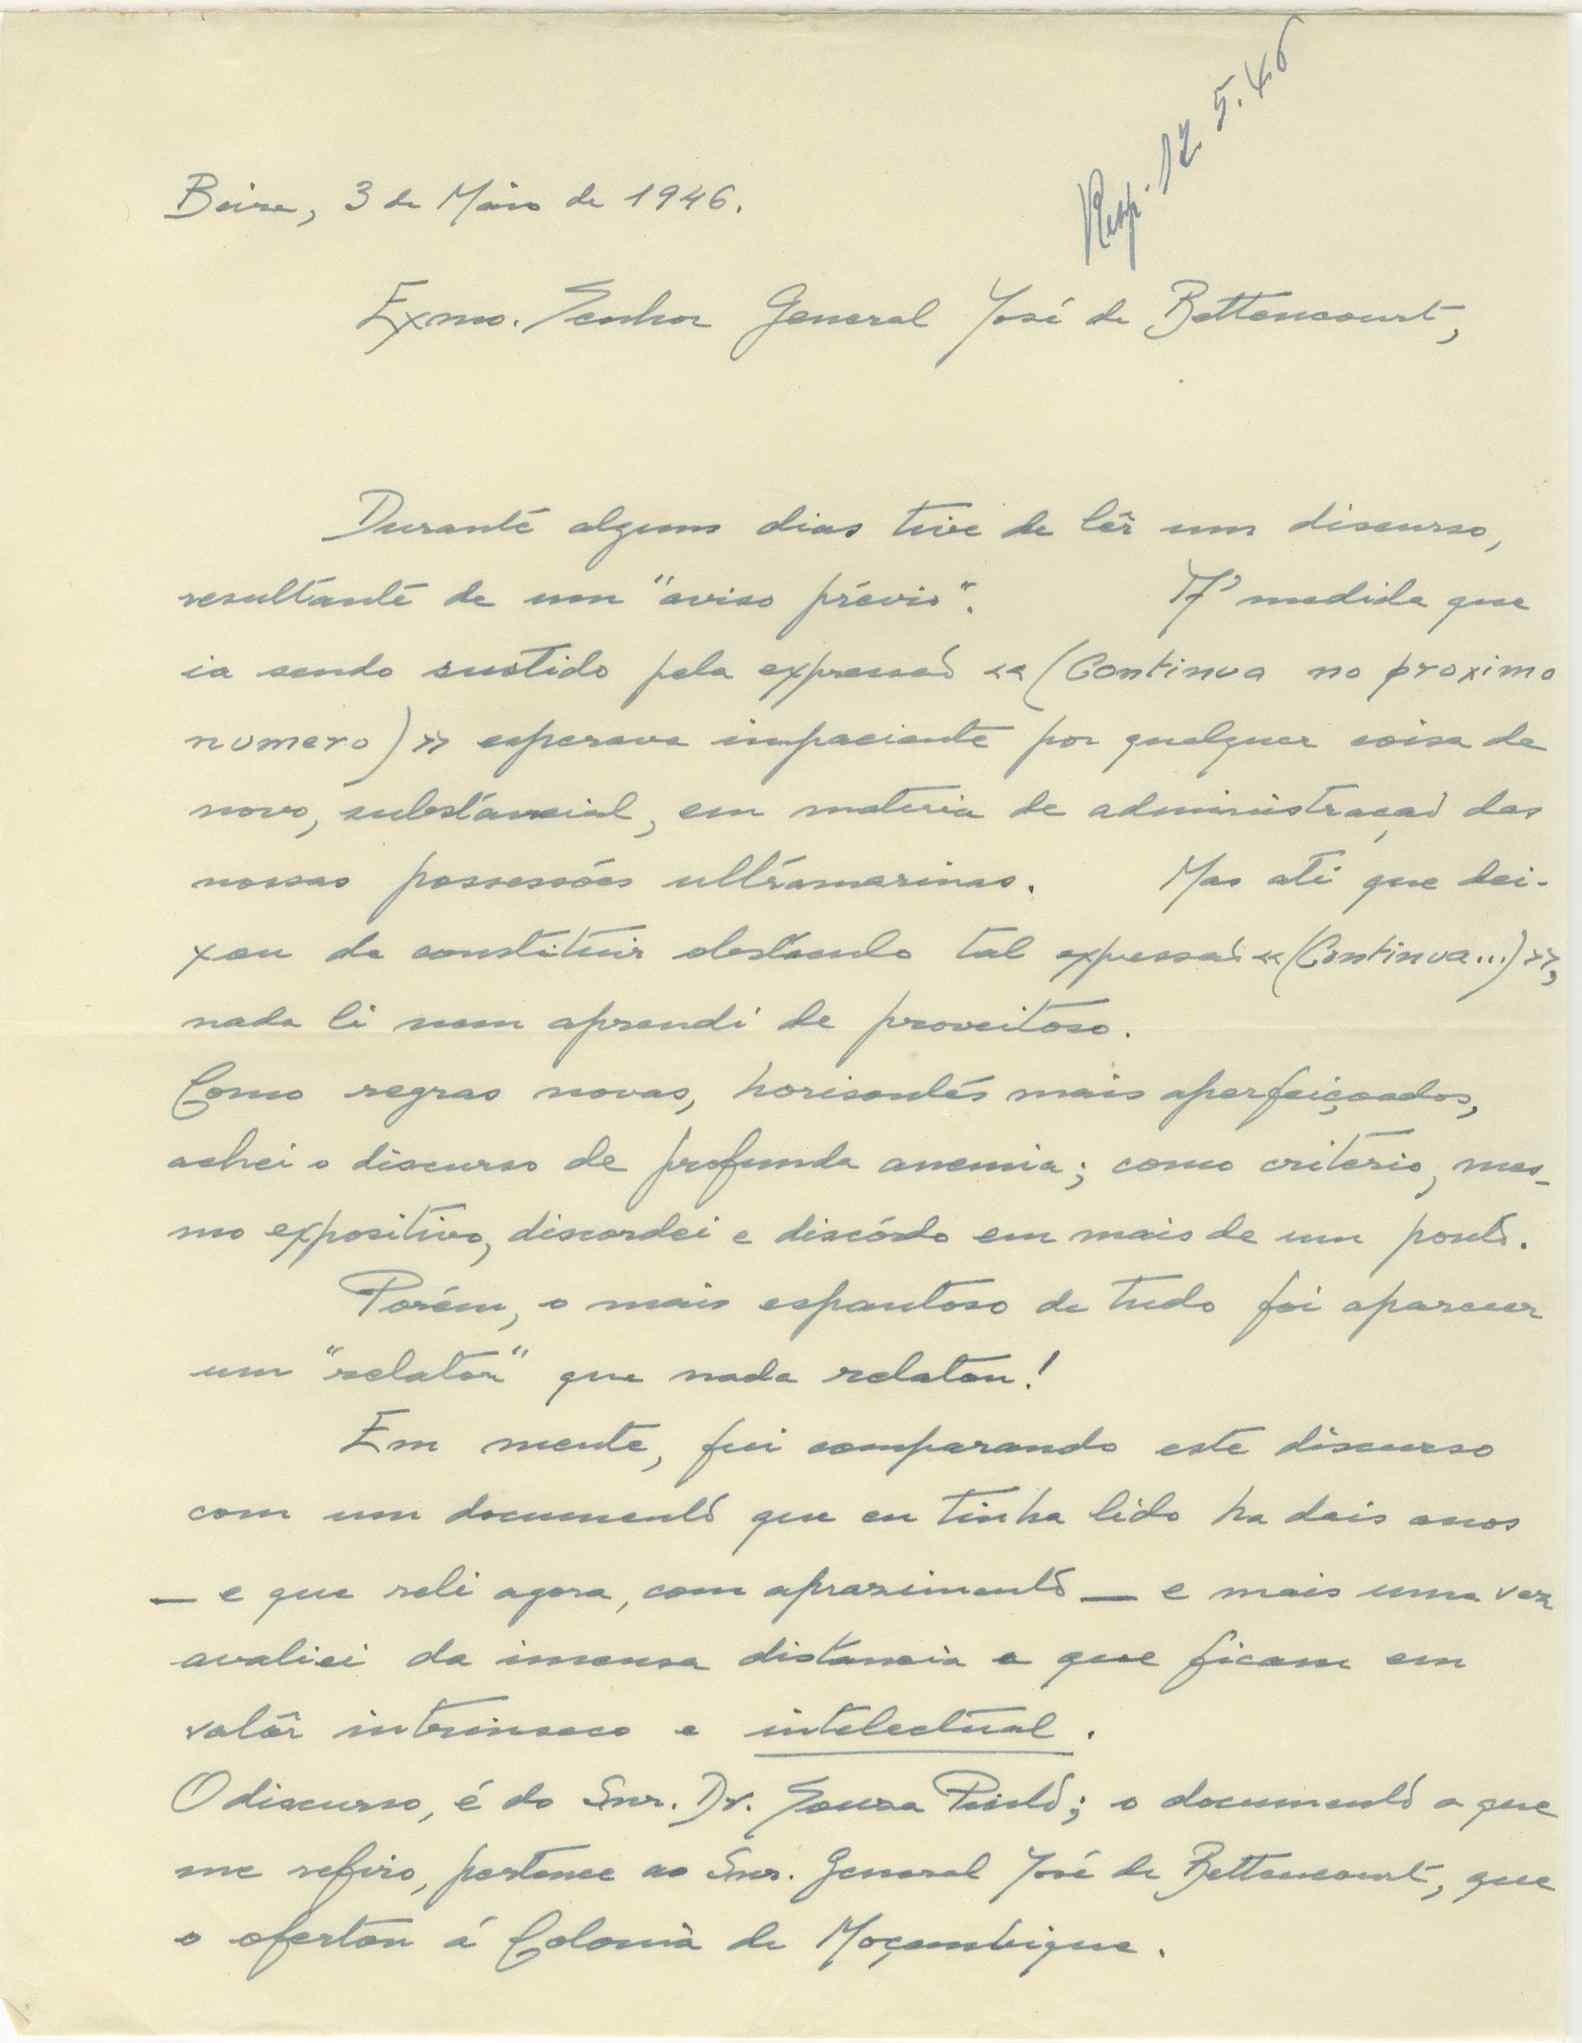 Resp. 12.5.46
Beira, 3 de Maio de 1946.
Exmo. Senhor General José de Bettencourt,
Durante alguns dias tive de lêr um discurso,
resultante de um "aviso prévio". A' medida que
ia sendo sustido pela expressaõ «(Continua no proximo
numero)» esperava impaciente por qualquer coisa de
novo, substancial, em materia de administraçaõ das
nossas possessões ultramarinas. Mas até que dei-
xou de constituir obstaculo tal expressaõ «(Continua...)»,
nada li nem aprendi de proveitoso.
Como regras novas, horisontes mais aperfeiçoados,
achei o discurso de profunda anemia; como criterio, mes-
mo expositivo, discordei e discórdo em mais de um ponto.
Porém, o mais espantoso de tudo foi aparecer
um "relator" que nada relatou!
Em mente, fui comparando este discurso
com um documento que eu tinha lido ha dois anos
— e que reli agora, com aprazimento — e mais uma vez
avaliei da imensa distancia a que ficam em
valôr intrinseco e intelectual.
O discurso, é do Snr. Dr. Souza Pinto; o documento a que
me refiro, pertence ao Snr. General José de Bettencourt, que
o ofertou á Colonia de Moçambique.